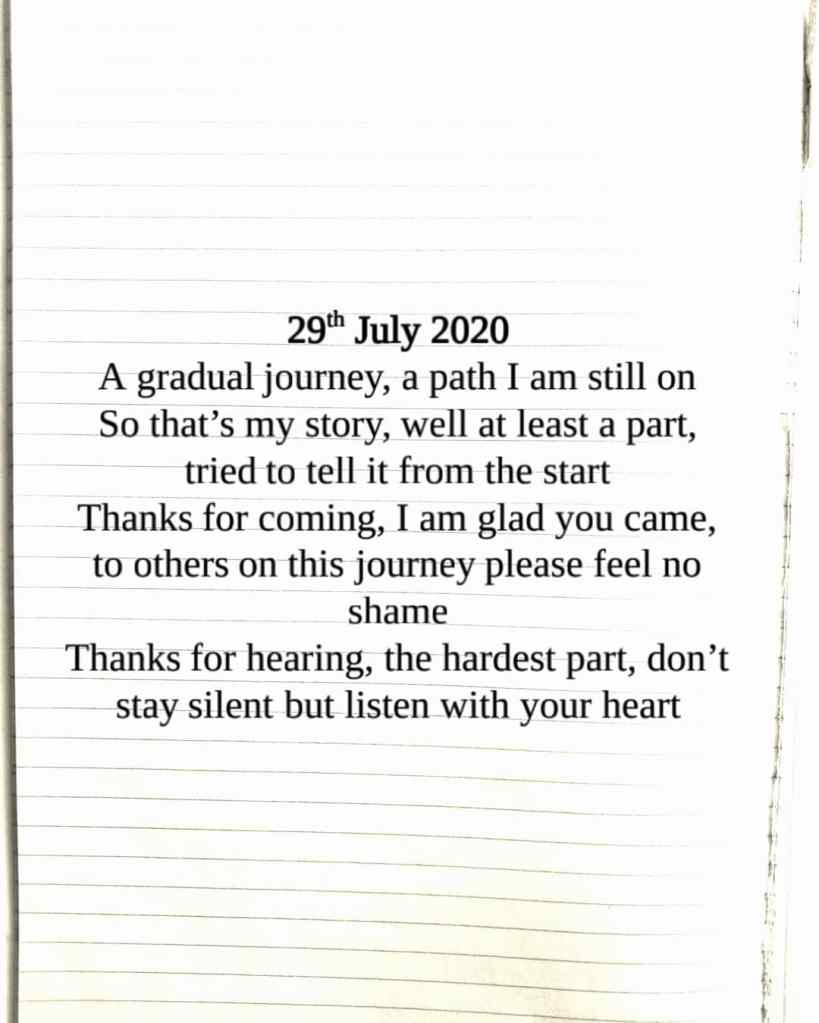 29th July 2020
A gradual journey, a path I am still on
So that’s my story, well at least a part,
tried to tell it from the start
Thanks for coming, I am glad you came,
to others on this journey please feel no
shame
Thanks for hearing, the hardest part, don’t
stay silent but listen with your heart